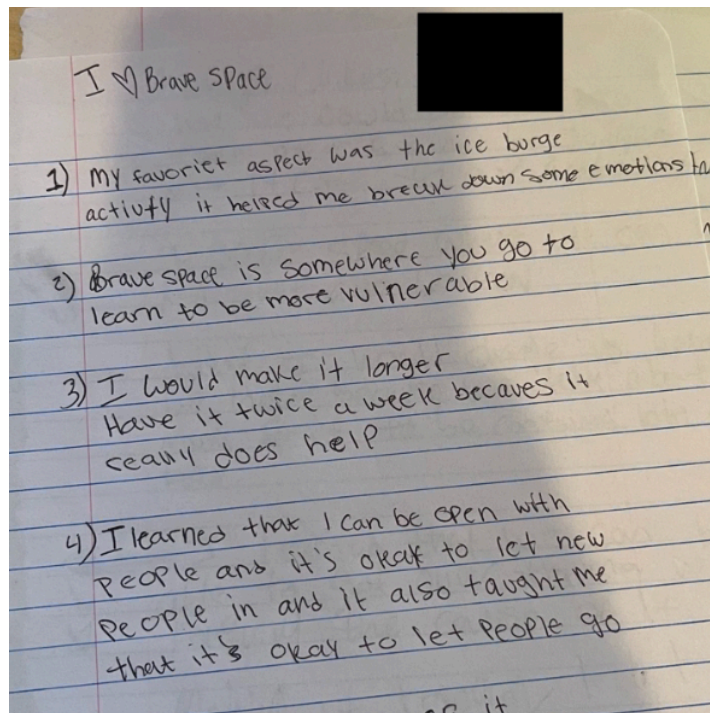 I ♡ Brave Space
1) My favoriet aspect was the ice burge
activty it helped me break down some emotions
2) Brave space is somewhere you go to
learn to be more vulnerable
3) I would make it longer
Have it twice a week becaves it
really does help
4) I learned that I can be open with
people and it's okay to let new
people in and it also taught me
that it's okay to let people go
it